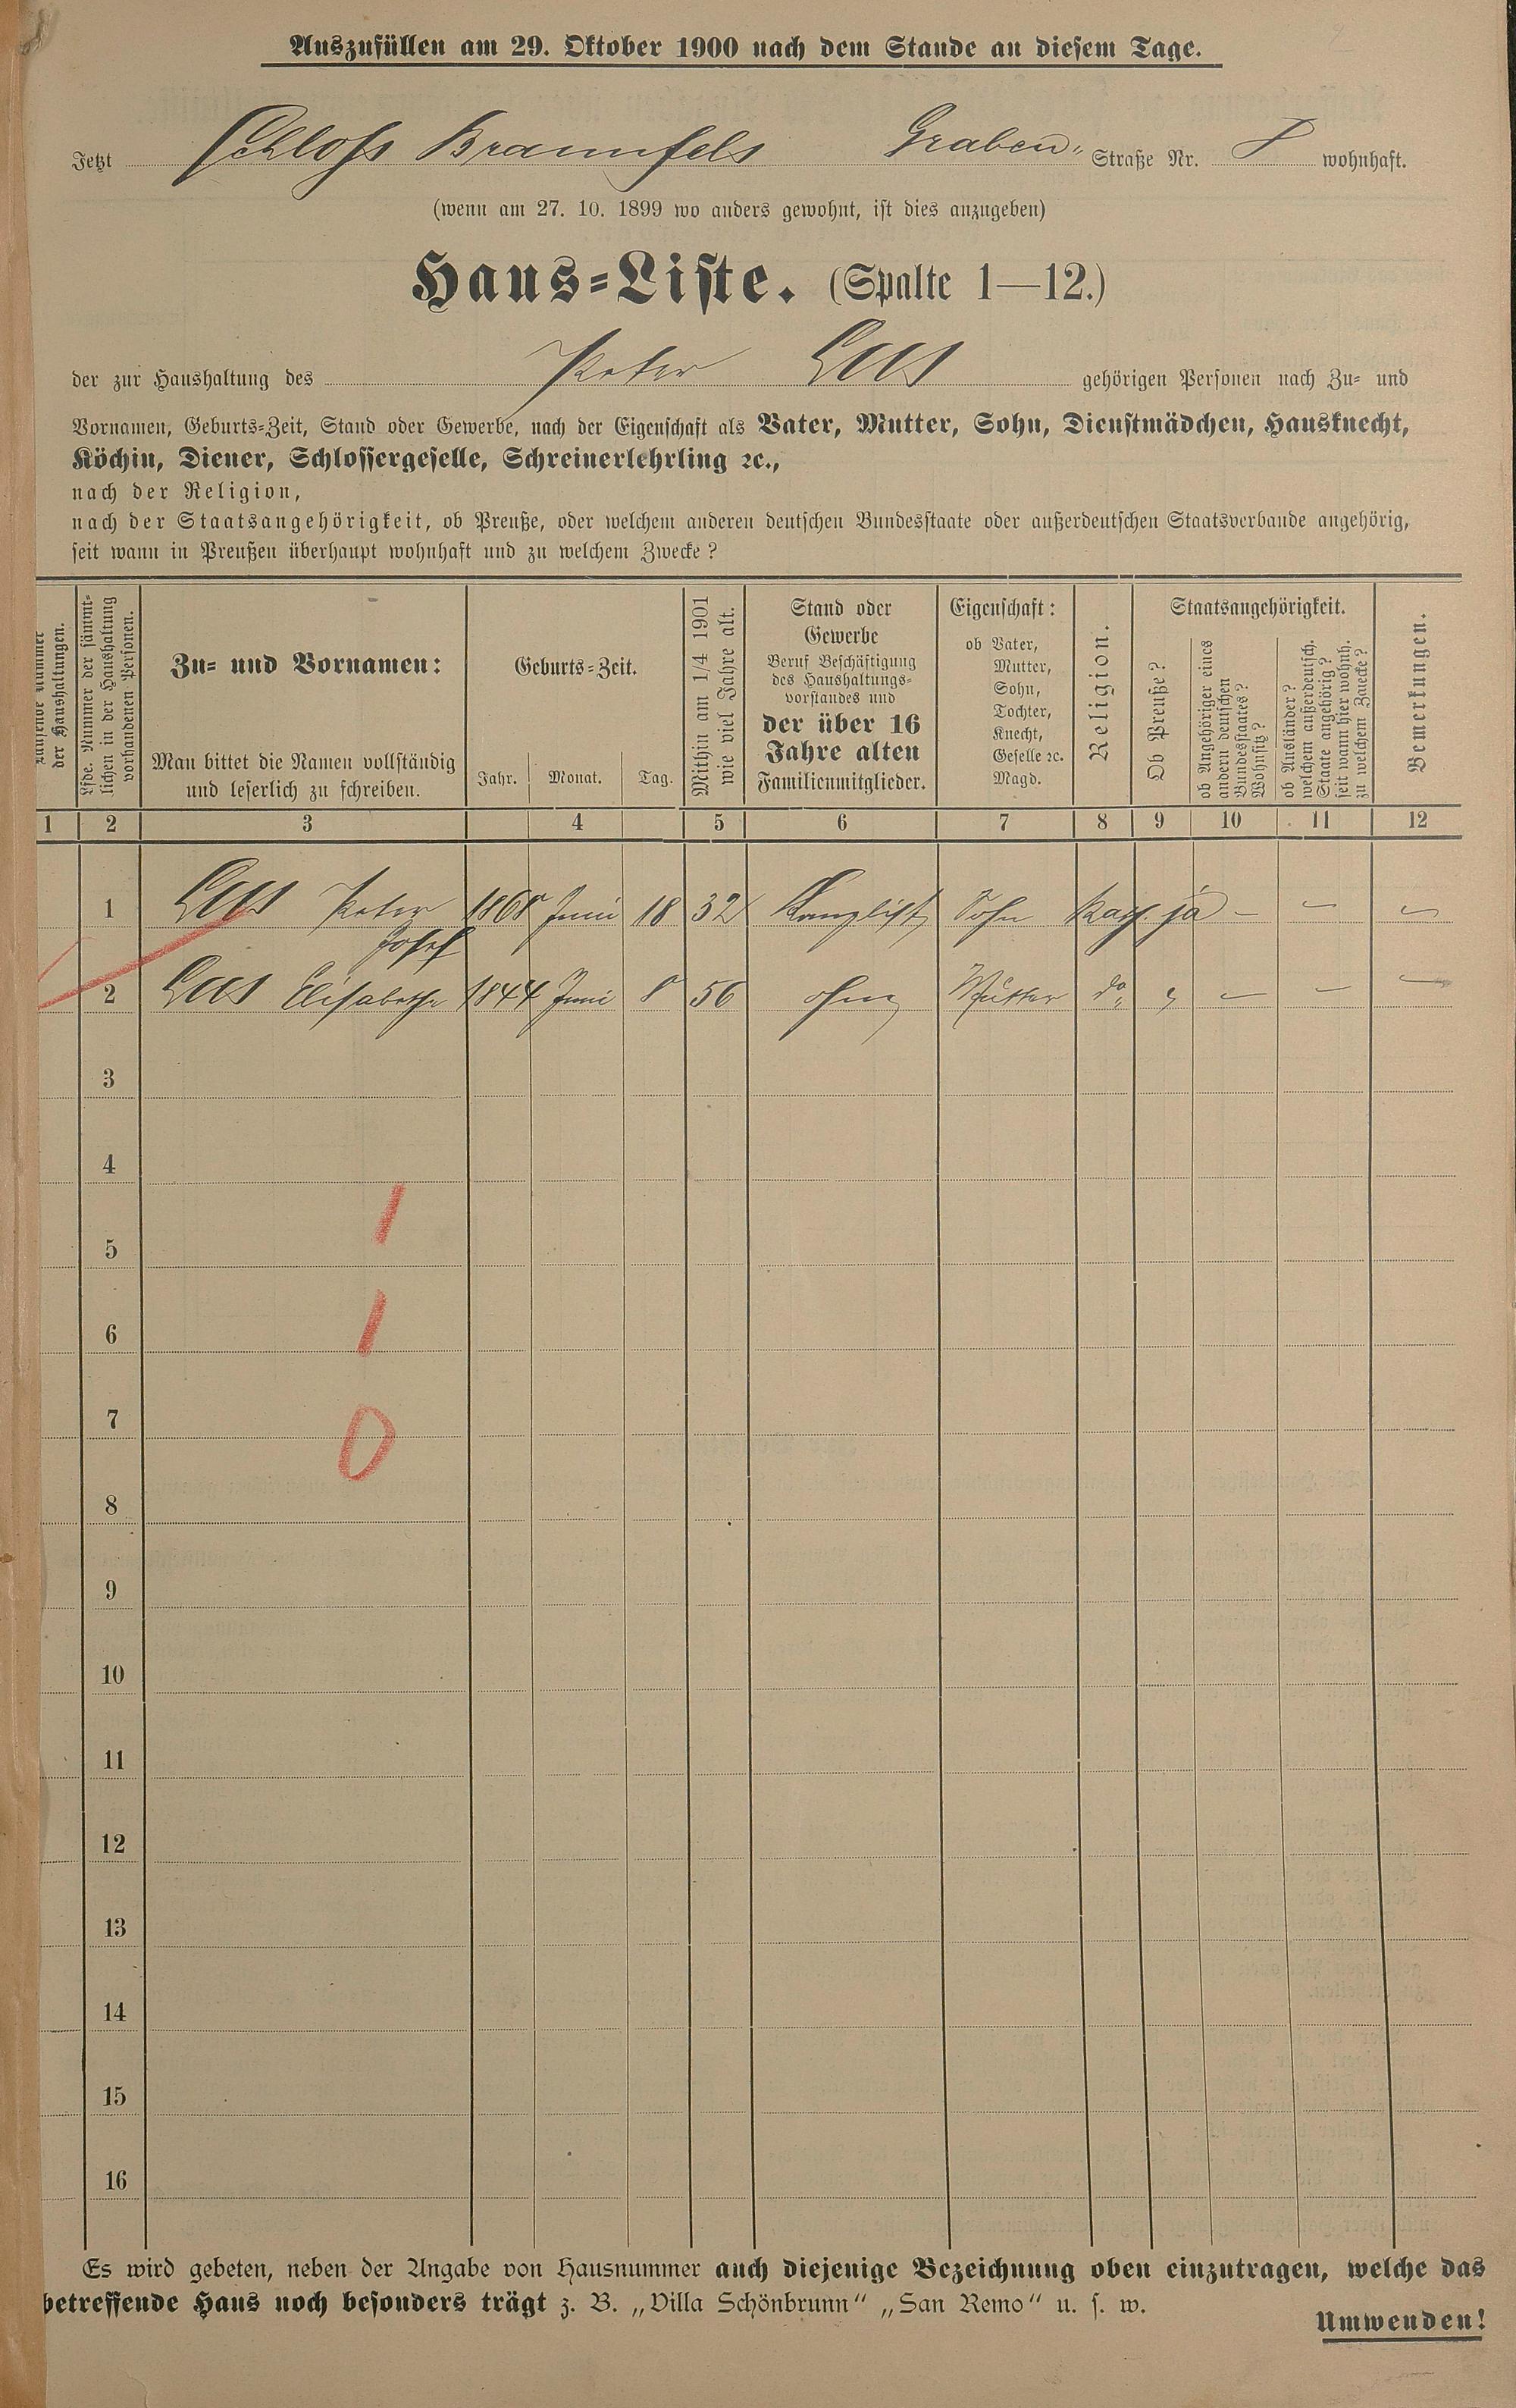 Auszufüllen am 29. Oktober 1900 nach dem Stande an diesem Tage.
Jetzt Schloss Braunfels Graben Straße Nr. 8 wohnhaft.
(wenn am 27. 10. 1899 wo anders gewohnt, ist dies anzugeben)
Haus-Liste. (Spalte 1—12.)
der zur Haushaltung des Peter gehörigen Personen nach Zu- und
Vornamen, Geburts-Zeit, Stand oder Gewerbe, nach der Eigenschaft als Vater, Mutter, Sohn, Dienstmädchen, Hausknecht,
Köchin, Diener, Schlossergeselle, Schreinerlehrling ꝛc.,
nach der Religion,
nach der Staatsangehörigkeit, ob Preuße, oder welchem anderen deutschen Bundesstaate oder außerdeutschen Staatsverbande angehörig,
seit wann in Preußen überhaupt wohnhaft und zu welchem Zwecke?
Nummer
der Haushaltungen.
Lfde. Nummer der sämmt-
lichen in der Haushaltung
vorhandenen Personen.
Zu- und Vornamen:
Man bittet die Namen vollständig
und leserlich zu schreiben.
Geburts-Zeit.
Jahr. Monat. Tag.
Mithin am 1/4 1901
wie viel Jahre alt.
Stand oder
Gewerbe
Beruf Beschäftigung
des Haushaltungs-
vorstandes und
der über 16
Jahre alten
Familienmitglieder.
Eigenschaft:
ob Vater,
Mutter,
Sohn,
Tochter,
Knecht,
Geselle ꝛc.
Magd.
Religion.
Staatsangehörigkeit.
Ob Preuße?
ob Angehöriger eines
andern deutschen
Bundesstaates?
Wohnsitz?
ob Ausländer?
welchem außerdeutsch.
Staate angehörig?
seit wann hier wohnh.
zu welchem Zwecke?
Bemerkungen.
1 2 3 4 5 6 7 8 9 10 11 12
1 Peter 1868 Juni 18 32 Kanzlist Sohn ja - - -
Josef
2 Elisabethe 1844 Juni 8 56 ohne Mutter do " - - -
3
4
1
5
1
6
7
0
8
9
10
11
12
13
14
15
16
Es wird gebeten, neben der Angabe von Hausnummer auch diejenige Bezeichnung oben einzutragen, welche das
betreffende Haus noch besonders trägt z. B. „Villa Schönbrunn“ „San Remo“ u. s. w.
Umwenden!